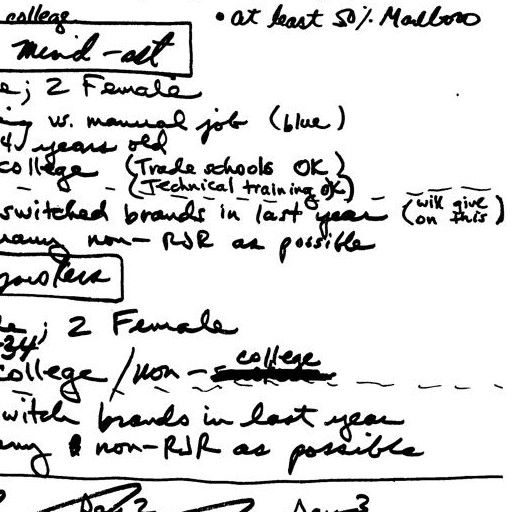 college • at least 50% Marlboro
mind-set
e; 2 Female
ing vs. manual job (blue)
4 years old
college (Trade schools OK)
(Technical training OK)
switched brands in last year (will give on this)
many non-RJR as possible
e; 2 Female
34
college/non-college
witch brands in last year
any non-RJR as possible
Day 2 Day 3